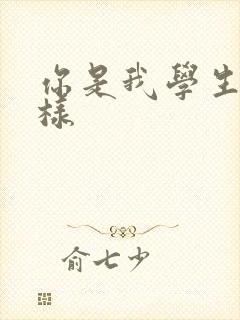 你是我學生
樣
俞七少